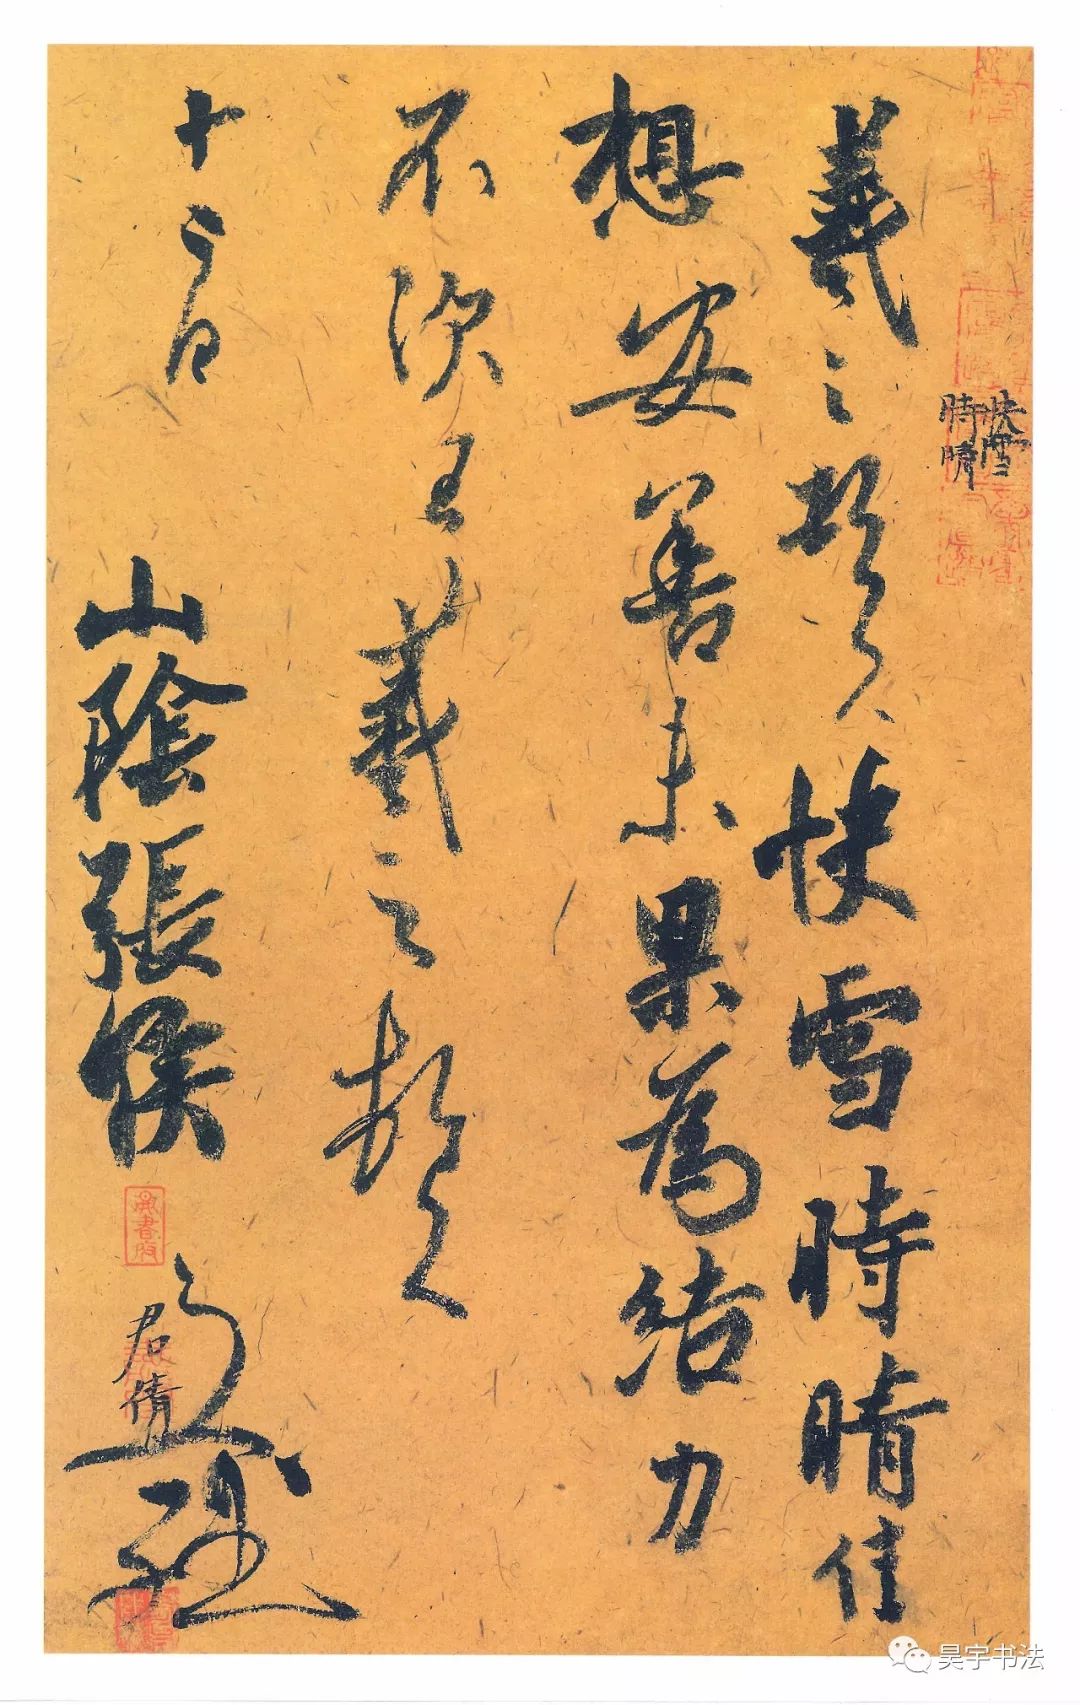 快雪
時晴
羲之頓首快雪時晴佳
想安善未果為結力
不次王羲之頓首
山陰張侯
君倩
昊宇书法